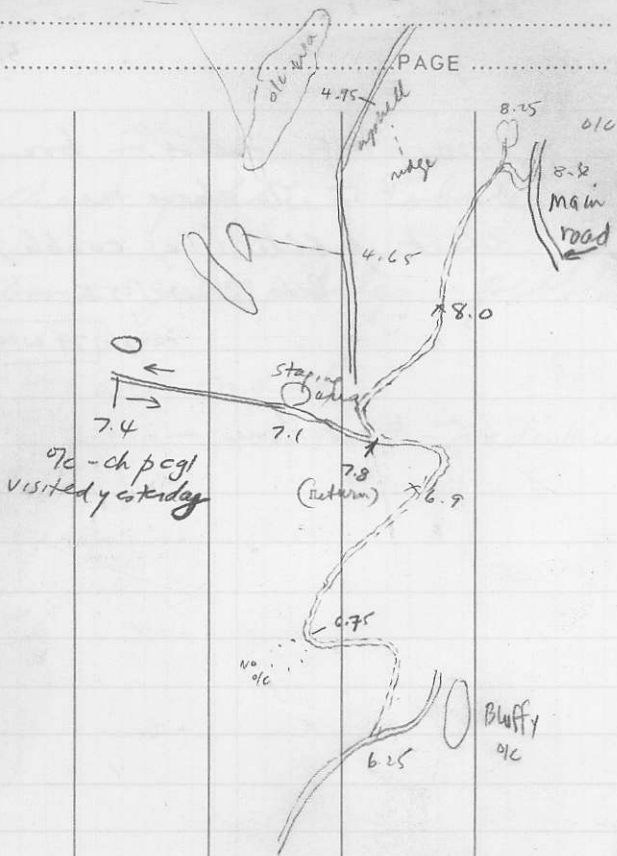 PAGE
o/c area
4.95
uphill
ridge
8.25
o/c
8.4
Main
road
4.65
8.0
Staging
area
7.4
7.1
7.8
(return)
o/c - ch p cgl
visited yesterday
6.9
6.75
No
o/c
6.25
Bluffy
o/c